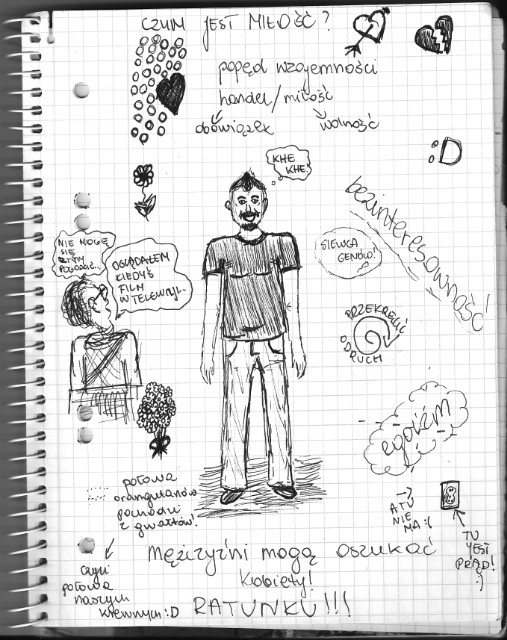 CZYM JEST MIŁOŚĆ?
popęd wzajemności
handel/miłość
obowiązek wolność
:D
KHE
KHE!
bezinteresowność!
SIEWCA
GENÓW!
NIE MOGĘ
SIĘ
POGODZIĆ...
OGLĄDAŁEM
KIEDYŚ
FILM
W TELEWIZJI...
PRZEKREŚLIĆ
ODRUCH
egoizm
połowa
orangutanów
pochodzi
z gwałtów!
A TU
NIE
MA :(
TU
JEST
PRĄD!
:)
czyli
połowa
naszym
krewnym :D
Mężczyźni mogą oszukać
kobiety!
RATUNKU!!!